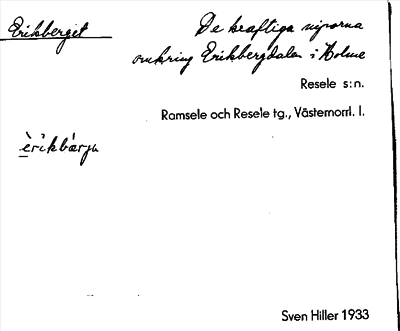 Erikberget
De kraftiga niporna
omkring Erikbergdalen i Holme
Resele s:n.
Ramsele och Resele tg., Västernorrl. l.
èrikbárjə
Sven Hiller 1933